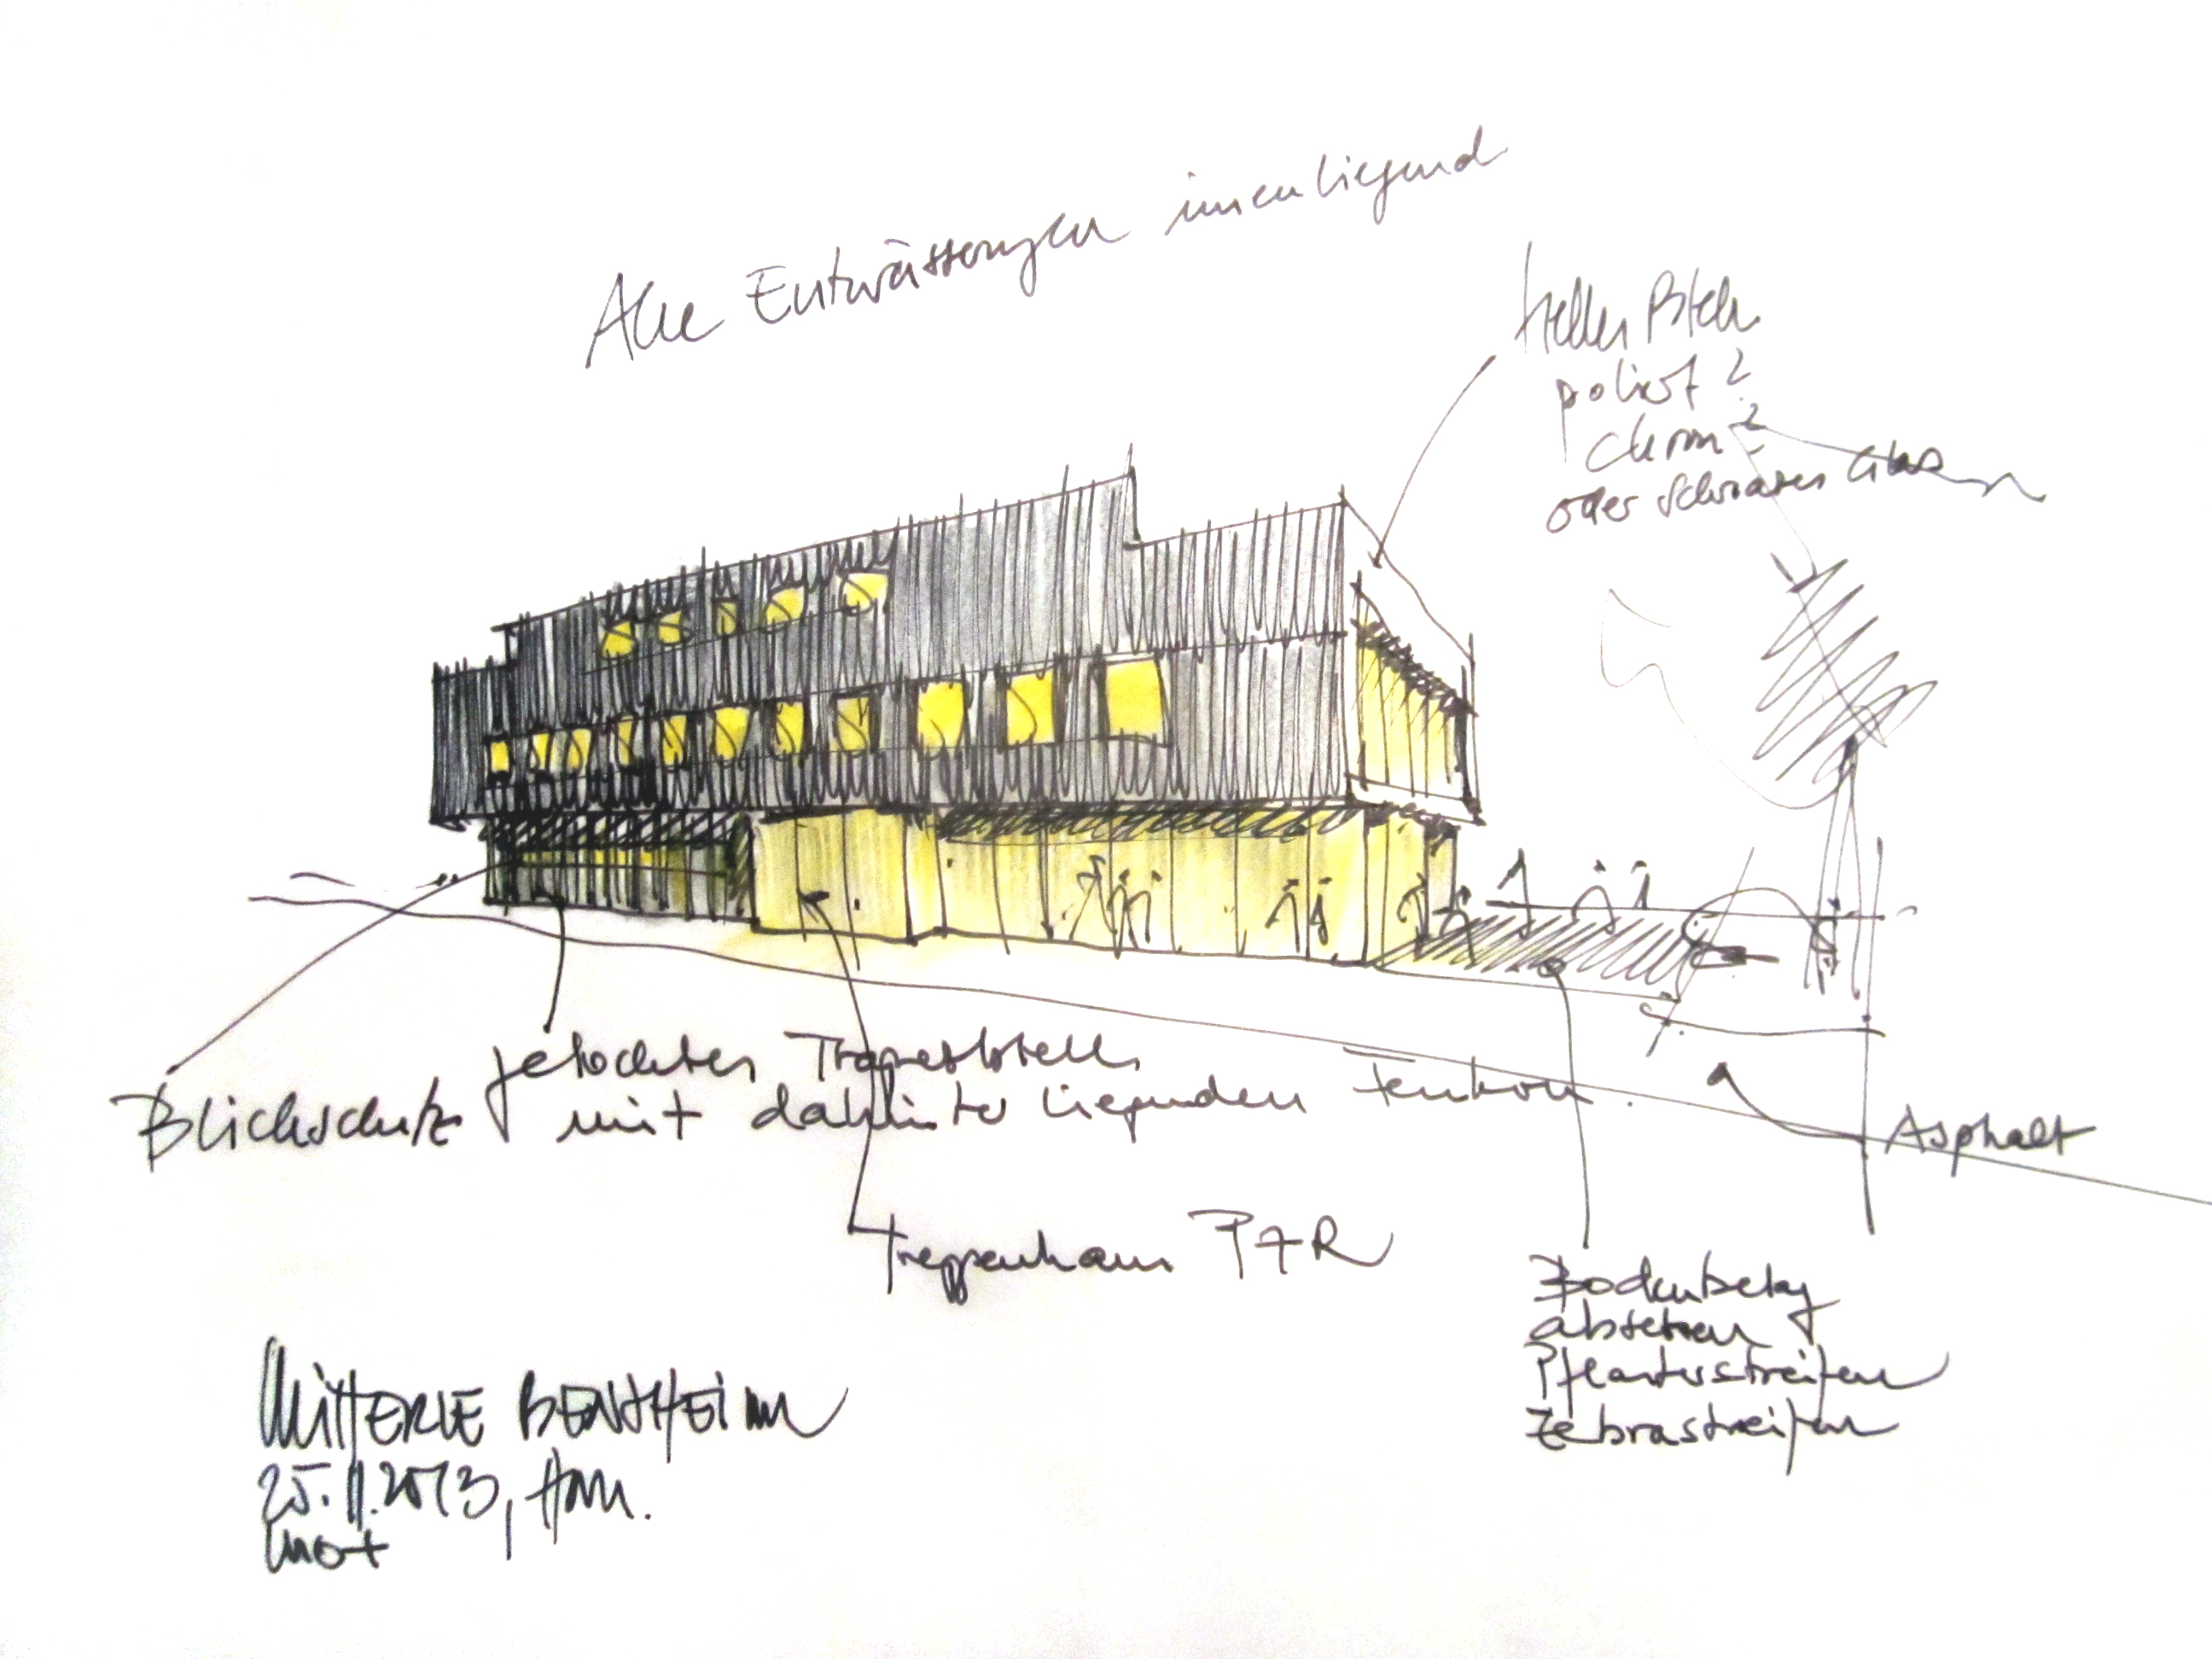 Alle Entwässerungen innenliegend
heller Blech
poliert?
Chrom?
oder schwarzes Glas
gelochtes Trapezblech
Blickschutz mit dahinter liegenden Fenstern.
Asphalt
Treppenhaus
Bodenbelag
absetzen
Pflasterstreifen
Zebrastreifen
BENTHEIM
25.11.2013,